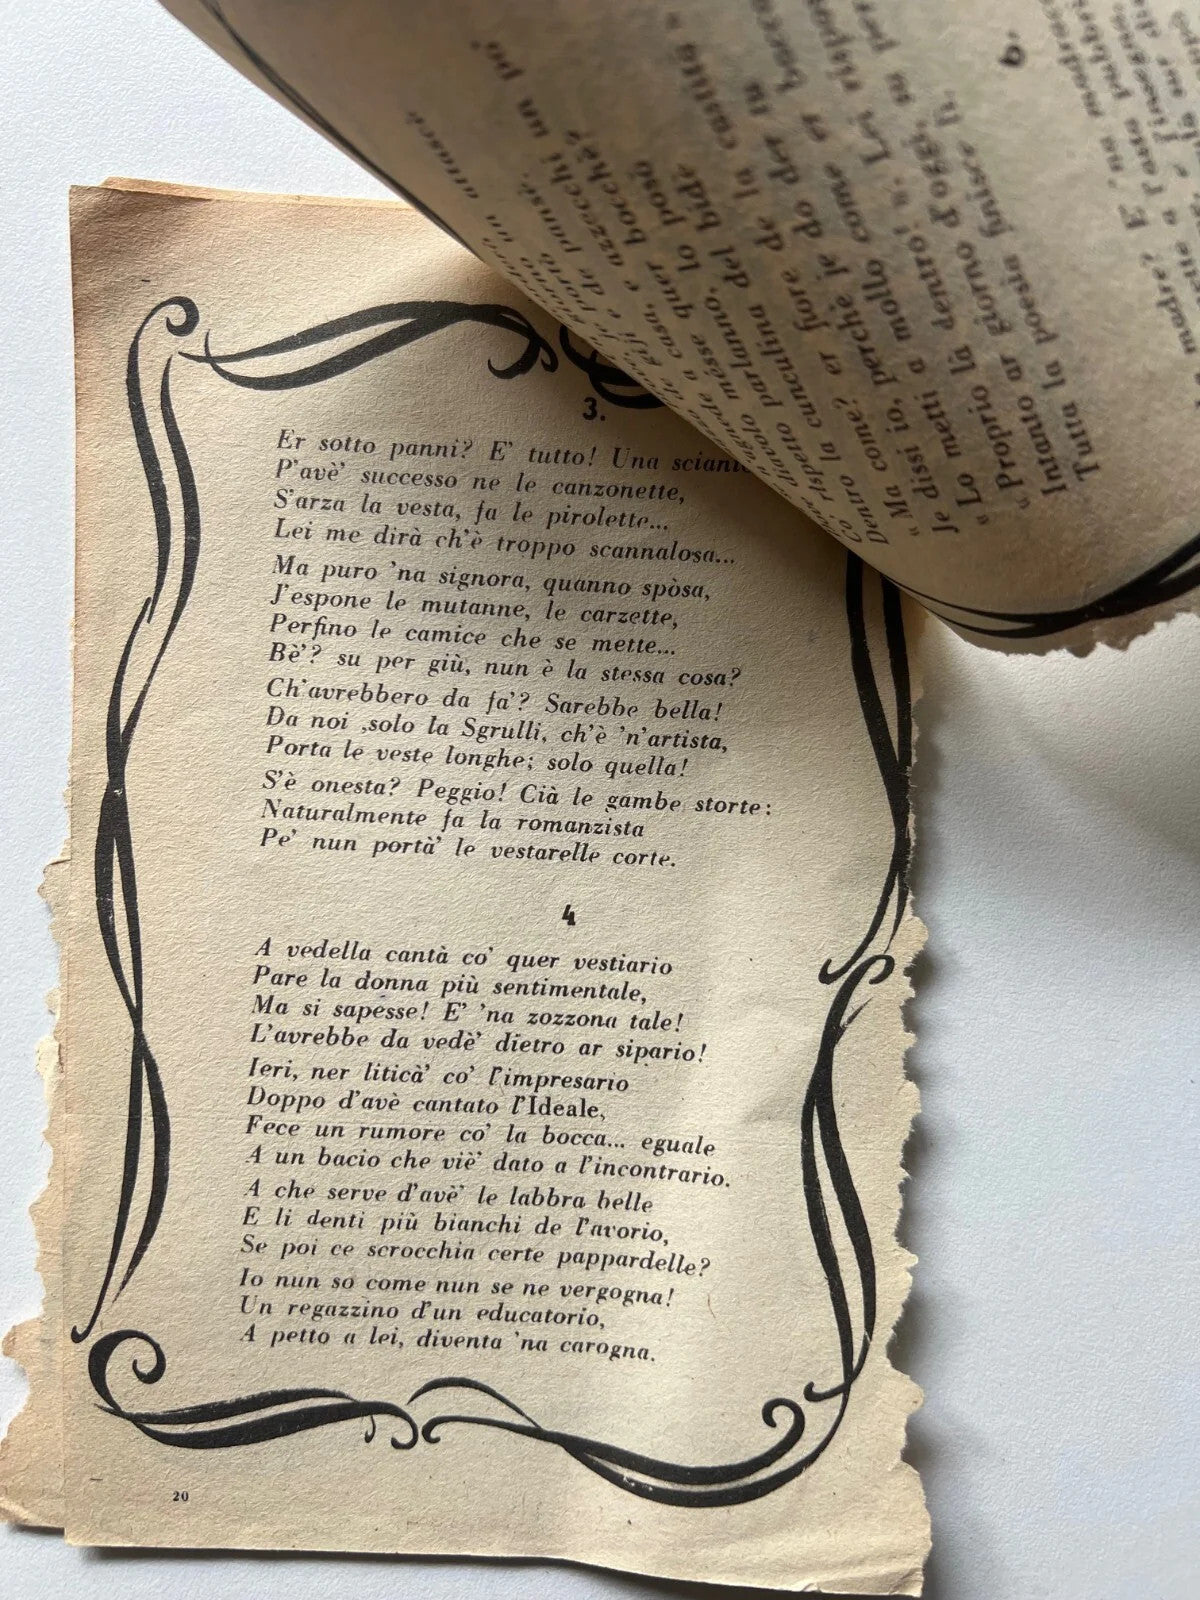 3.
Er sotto panni? E' tutto! Una
P'avè' successo ne le canzonette,
S'arza la vesta, fa le pirolette...
Lei me dirà ch'è troppo scannalosa...
Ma puro 'na signora, quanno spòsa,
J'espone le mutanne, le carzette,
Perfino le camice che se mette...
Bè'? su per giù, nun è la stessa cosa?
Ch'avrebbero da fa'? Sarebbe bella!
Da noi ,solo la Sgrulli, ch'è 'n'artista,
Porta le veste longhe; solo quella!
S'è onesta? Peggio! Cià le gambe storte:
Naturalmente fa la romanzista
Pe' nun portà' le vestarelle corte.
4
A vedella cantà co' quer vestiario
Pare la donna più sentimentale,
Ma si sapesse! E' 'na zozzona tale!
L'avrebbe da vedè' dietro ar sipario!
Ieri, ner liticà' co' l'impresario
Doppo d'avè cantato l'Ideale,
Fece un rumore co' la bocca... eguale
A un bacio che viè' dato a l'incontrario.
A che serve d'avè' le labbra belle
E li denti più bianchi de l'avorio,
Se poi ce scrocchia certe pappardelle?
Io nun so come nun se ne vergogna!
Un regazzino d'un educatorio,
A petto a lei, diventa 'na carogna.
20
un po'
azzecchi
bocchè?
a casa, e
quer
lo posò
parlanno, del bidè
Co' rispetto
Dentro la cunculina de la castità »
« Ma come? er fiore
Je dissi io, perchè je do der tu
« Lo metti a mollo come er
« Proprio là dentro! », Lei
Intanto ar giorno d'oggi, su per
Tutta la poesia finisce lì.
6.
madre? E' 'na